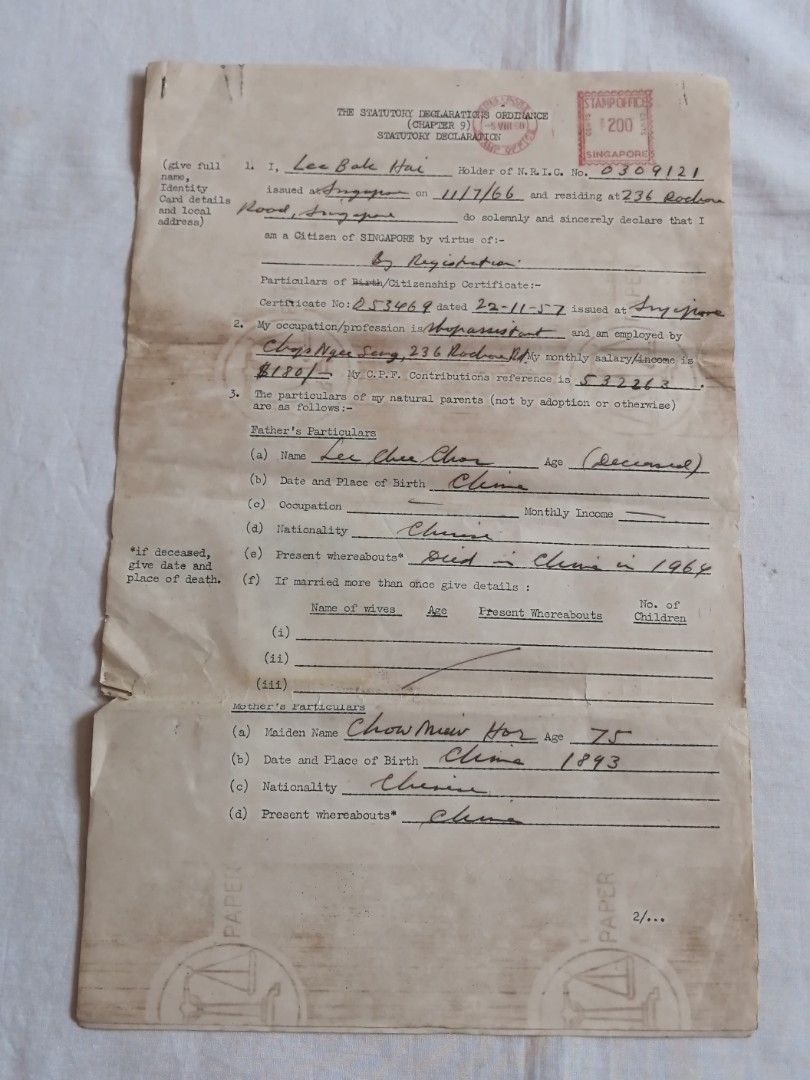 THE STATUTORY DECLARATIONS ORDINANCE
(CHAPTER 9)
STATUTORY DECLARATION
STAMP OFFICE
$200
SINGAPORE
(give full
name,
Identity
Card details
and local
address)
1. I, Lee Bak Hai Holder of N.R.I.C. No. 0309121
issued at Singapore on 11/7/66 and residing at 236 Rochore
Road, Singapore do solemnly and sincerely declare that I
am a Citizen of SINGAPORE by virtue of:-
By Registration.
Particulars of Birth/Citizenship Certificate:-
Certificate No: 053469 dated 22-11-57 issued at Singapore
2. My occupation/profession is shopassistant and am employed by
Chop Ngee Seng, 236 Rochore Rd. My monthly salary/income is
$180/- My C.P.F. Contributions reference is 532263.
3. The particulars of my natural parents (not by adoption or otherwise)
are as follows:-
Father's Particulars
(a) Name Lee Chee Age (Deceased)
(b) Date and Place of Birth China
(c) Occupation — Monthly Income —
(d) Nationality Chinese
(e) Present whereabouts* Died in China in 1964
*if deceased,
give date and
place of death.
(f) If married more than once give details :
Name of wives Age Present Whereabouts No. of
Children
(i)
(ii)
(iii)
Mother's Particulars
(a) Maiden Name Chow Miew Hor Age 75
(b) Date and Place of Birth China 1893
(c) Nationality Chinese
(d) Present whereabouts* China
2/...
PAPER
PAPER